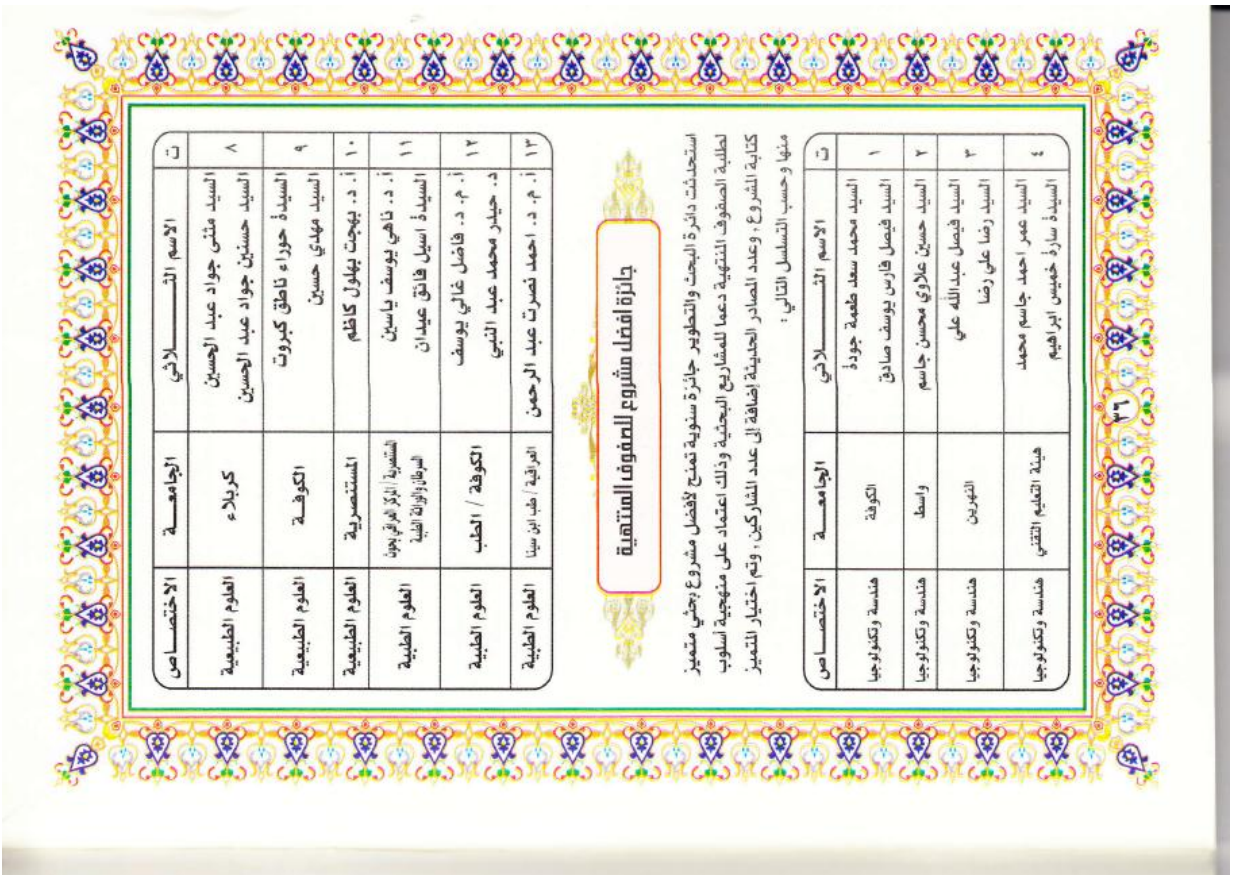 ت الاسم الثـــــلاثي الجامعـــة الاختصـــاص
٨ السيد مثنى جواد عبد الحسين
السيد حسنين جواد عبد الحسين كربلاء العلوم الطبيعية
٩ السيدة حوراء ناطق كبروت
السيد مهدي حسين الكوفـة العلوم الطبيعية
١٠ أ. د. بهجت بهلول كاظم المستنصرية العلوم الطبيعية
١١ أ. د. ناهي يوسف ياسين المستنصرية / المركز العراقي لبحوث
السيدة اسيل فائق عبدان السرطان والوراثة الطبية العلوم الطبية
١٢ أ. م. د. فاضل غالي يوسف
د. حيدر محمد عبد النبي الكوفة / الطب العلوم الطبية
١٣ أ. م. د. احمد نصرت عبد الرحمن العراقية / طب ابن سينا العلوم الطبية
جائزة افضل مشروع للصفوف المنتهية
استحدثت دائرة البحث والتطوير جائزة سنوية تمنح لأفضل مشروع بحثي متميز
لطلبة الصفوف المنتهية دعما للمشاريع البحثية وذلك اعتماد على منهجية اسلوب
كتابة المشروع ، وعدد المصادر الحديثة إضافة إلى عدد المشاركين ، وتم اختيار المتميز
منها وحسب التسلسل التالي :
ت الاسم الثـــــلاثي الجامعـــة الاختصـــاص
١ السيد محمد سعد طعمة جودة
السيد فيصل فارس يوسف صادق الكوفة هندسة وتكنولوجيا
٢ السيد حسين علاوي محسن جاسم واسط هندسة وتكنولوجيا
٣ السيد فيصل عبدالله علي
السيد رضا علي رضا النهرين هندسة وتكنولوجيا
٤ السيد عمر احمد جاسم محمد
السيدة سارة خميس ابراهيم هيئة التعليم التقني هندسة وتكنولوجيا
٣٦